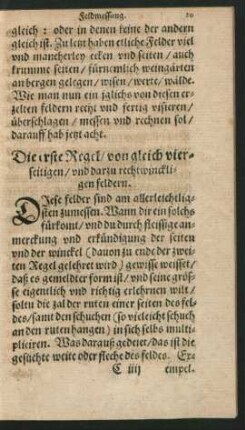 Feldmessung.
gleich : oder in denen keine der andern
gleich ist. Zu letzt haben etliche Felder viel
und mancherley ecken und seiten / auch
krumme seiten / fürnemlich weingärten
an bergen gelegen / wisen / werte / wälde.
Wie man nun ein iglichs von diesen er
zelten feldern recht und fertig visieren /
überschlagen / messen und rechnen sol /
darauff hab jetzt acht.
Die erste Regel / von gleich vier-
seitigen / und darzu rechtwinckli-
gen feldern.
DIese felder sind am allerleichtlig-
sten zumessen. Wann dir ein solchs
fürkomt / und du durch fleissige an-
merckung und erkündigung der seiten
und der winckel (dauon zu ende der zwei-
ten Regel gelehret wird) gewisse weissest /
daß es gemeldter form ist / und seine grös-
se eigentlich und richtig erlehrnen wilt /
soltu die zal der ruten einer seiten des fel-
des / samt den schuchen (so vieleicht schuch
an den ruten hangen) in sich selbs multi-
pliciren. Was darauß gedeiet / das ist die
gesuchte weite oder fleche des feldes. Ex-
C iiij empel.